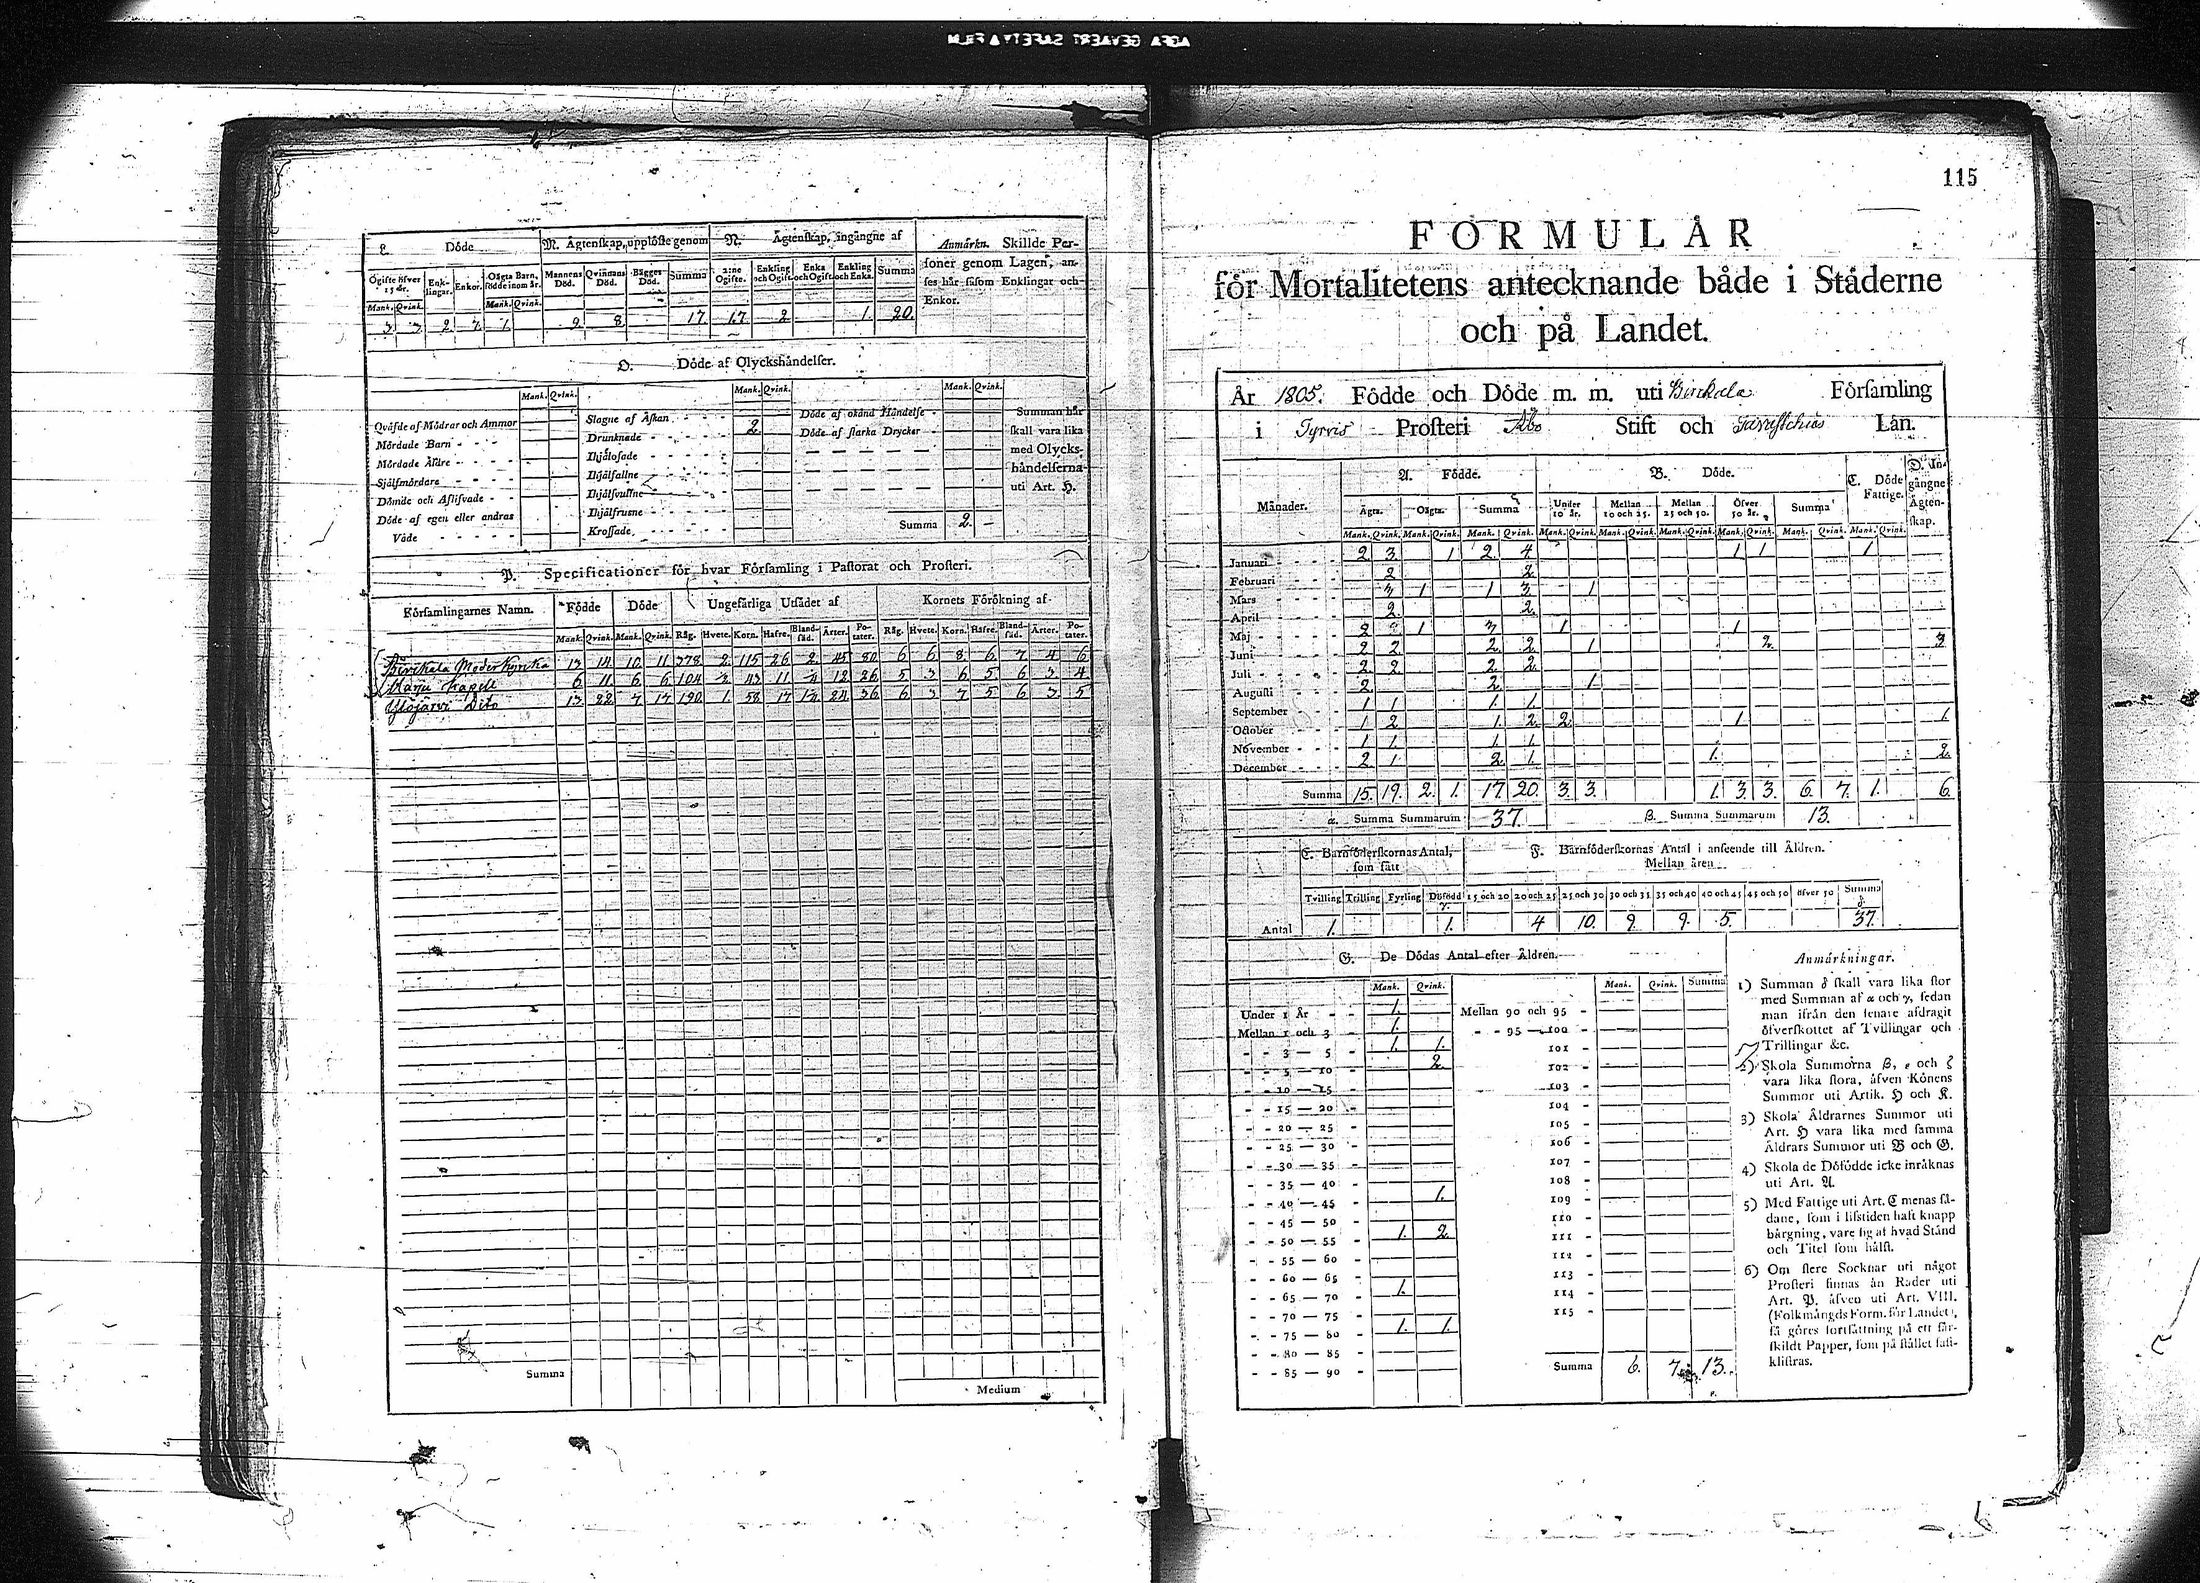 AGFA GEVAERT SAFETY FILM
L. Döde
M. Ägtenskap, upplöste genom
N. Ägtenskap, ingångne af
Anmärkn. Skillde Personer genom Lagen, anses här såsom Enklingar och Enkor.
Ogifte öfver 15 år. Enklingar. Enkor. Oägta Barn, födde inom år. Mannens Död. Qvinnans Död. Bägges Död. Summa 2:ne Ogifte. Enkling och Ogift. Enka och Ogift. Enkling och Enka. Summa
Mank. Qvink. Mank. Qvink.
3 3 2 7 1. 9 8 17. 17. 2 1. 20.
O. Döde af Olyckshändelser.
Mank. Qvink. Mank. Qvink. Mank. Qvink.
Qväfde af Mödrar och Ammor
Mördade Barn
Mördade Äldre
Sjålfmördare
Dömde och Aflifvade
Döde af egen eller andras Våde
Slagne af Åskan
Drunknade 2.
Ihjälosade
Ihjälfallne
Ihjälsvultne
Ihjälfrusne
Krossade
Döde af okänd Händelse
Döde af starka Drycker
Summa 2. -
Summan här
skall vara lika
med Olycks-
händelserna
uti Art. H.
P. Specificationer för hvar Församling i Pastorat och Prosteri.
Församlingarnes Namn. Födde Döde Ungefärliga Utsädet af Kornets Förökning af
Mank. Qvink. Mank. Qvink. Råg. Hvete. Korn. Hafre. Bland-säd. Ärter. Po-tater. Råg. Hvete. Korn. Hafre. Bland-säd. Ärter. Po-tater.
Birckala Moder Kyrcka 13 14 10 11 378 2 115 26 2 45 80 6 6 8 6 7 4 6
Harju Capell 6 11 6 6 104 43 11 12 26 5 3 6 5 6 3 4
Ylöjärvi Dito 13 22 7 17 190 1. 58 17 24 36 6 3 7 5 6 3 5
Summa
Medium
115
FORMULÄR
för Mortalitetens antecknande både i Städerne
och på Landet.
År 1805. Födde och Döde m. m. uti Birckala Församling
i Tyrvis Prosteri Åbo Stift och Tavastehus Län.
Månader. A. Födde. B. Döde. C. Döde Fattige. D. Ingångne Ägtenskap.
Ägta. Oägta. Summa Under 10 år. Mellan 10 och 25. Mellan 25 och 50. Öfver 50 år. Summa
Mank. Qvink. Mank. Qvink. Mank. Qvink. Mank. Qvink. Mank. Qvink. Mank. Qvink. Mank. Qvink. Mank. Qvink. Mank. Qvink.
Januari 2 3. 1 2. 4 1 1 1
Februari 2 2
Mars 3 1 1 3 1
April 2. 2.
Maj 2 1 3 1 1
Juni 2 2 2 2 1 2. 3
Juli 2 2 2 2
Augusti 2 2 1
September 1 1 1. 1.
October 1 2 1. 2 2 1 1.
November 1 1. 1. 1
December 2 1. 2 1. 1. 2
Summa 15. 19. 2 1. 17 20. 3. 3. 1. 3. 3. 6. 7. 1. 6.
α. Summa Summarum 37. β. Summa Summarum 13.
E. Barnföderskornas Antal, som fått
F. Barnföderskornas Antal i anseende till Åldren. Mellan åren
Tvilling Trilling Fyrling Döfödd γ. 15 och 20 20 och 25 25 och 30 30 och 35 35 och 40 40 och 45 45 och 50 öfver 50 Summa δ.
Antal 1. 1. 4 10. 9. 9. 5. 37.
G. De Dödas Antal efter Åldren.
Mank. Qvink. Mank. Qvink. Summa
Under 1 År 1.
Mellan 1 och 3 1.
3 — 5 1. 1.
5 — 10 2.
10 — 15
15 — 20
20 — 25
25 — 30
30 — 35
35 — 40
40 — 45 1.
45 — 50
50 — 55 1. 2.
55 — 60
60 — 65
65 — 70 1.
70 — 75
75 — 80 1. 1.
80 — 85
85 — 90
Mellan 90 och 95
95 — 100
101
102
103
104
105
106
107
108
109
110
111
112
113
114
115
Summa 6. 7. 13.
Anmärkningar.
1) Summan δ skall vara lika stor
med Summan af α och γ, sedan
man ifrån den senare afdragit
öfverskottet af Tvillingar och
Trillingar &c.
2) Skola Summorna β, ε och ζ
vara lika stora, äfven Könens
Summor uti Artik. H och K.
3) Skola Åldrarnes Summor uti
Art. H vara lika med samma
Åldrars Summor uti B och G.
4) Skola de Döfödde icke inräknas
uti Art. A.
5) Med Fattige uti Art. C menas så-
dane, som i lifstiden haft knapp
bärgning, vare sig af hvad Stånd
och Titel som hälst.
6) Om flere Socknar uti något
Prosteri finnas än Rader uti
Art. P. äfven uti Art. VIII.
(Folkmängds Form. för Landet),
så göres fortsättning på ett sär-
skildt Papper, som på stället fast-
klistras.